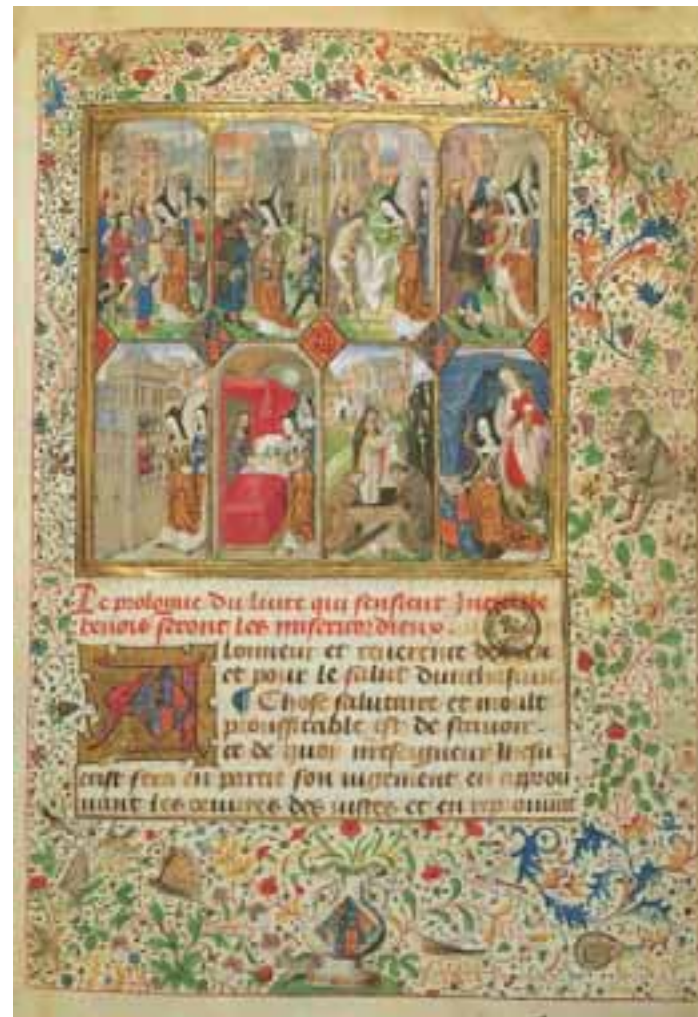 Le prologue du liure qui sensieut Intitule
benois seront les misericordieux.
A lonneur et reuerence de dieu
et pour le salut
Chose salutaire et moult
prouffitable est de sauoir
et de quoy monseigneur Ihesu
crist fera en partie son iugement en approu
uant les oeuures des iustes et en reprouuant